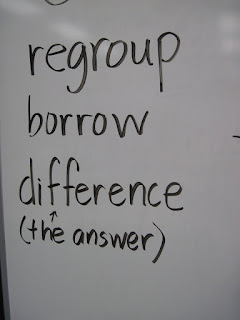 regroup
borrow
difference
(the answer)